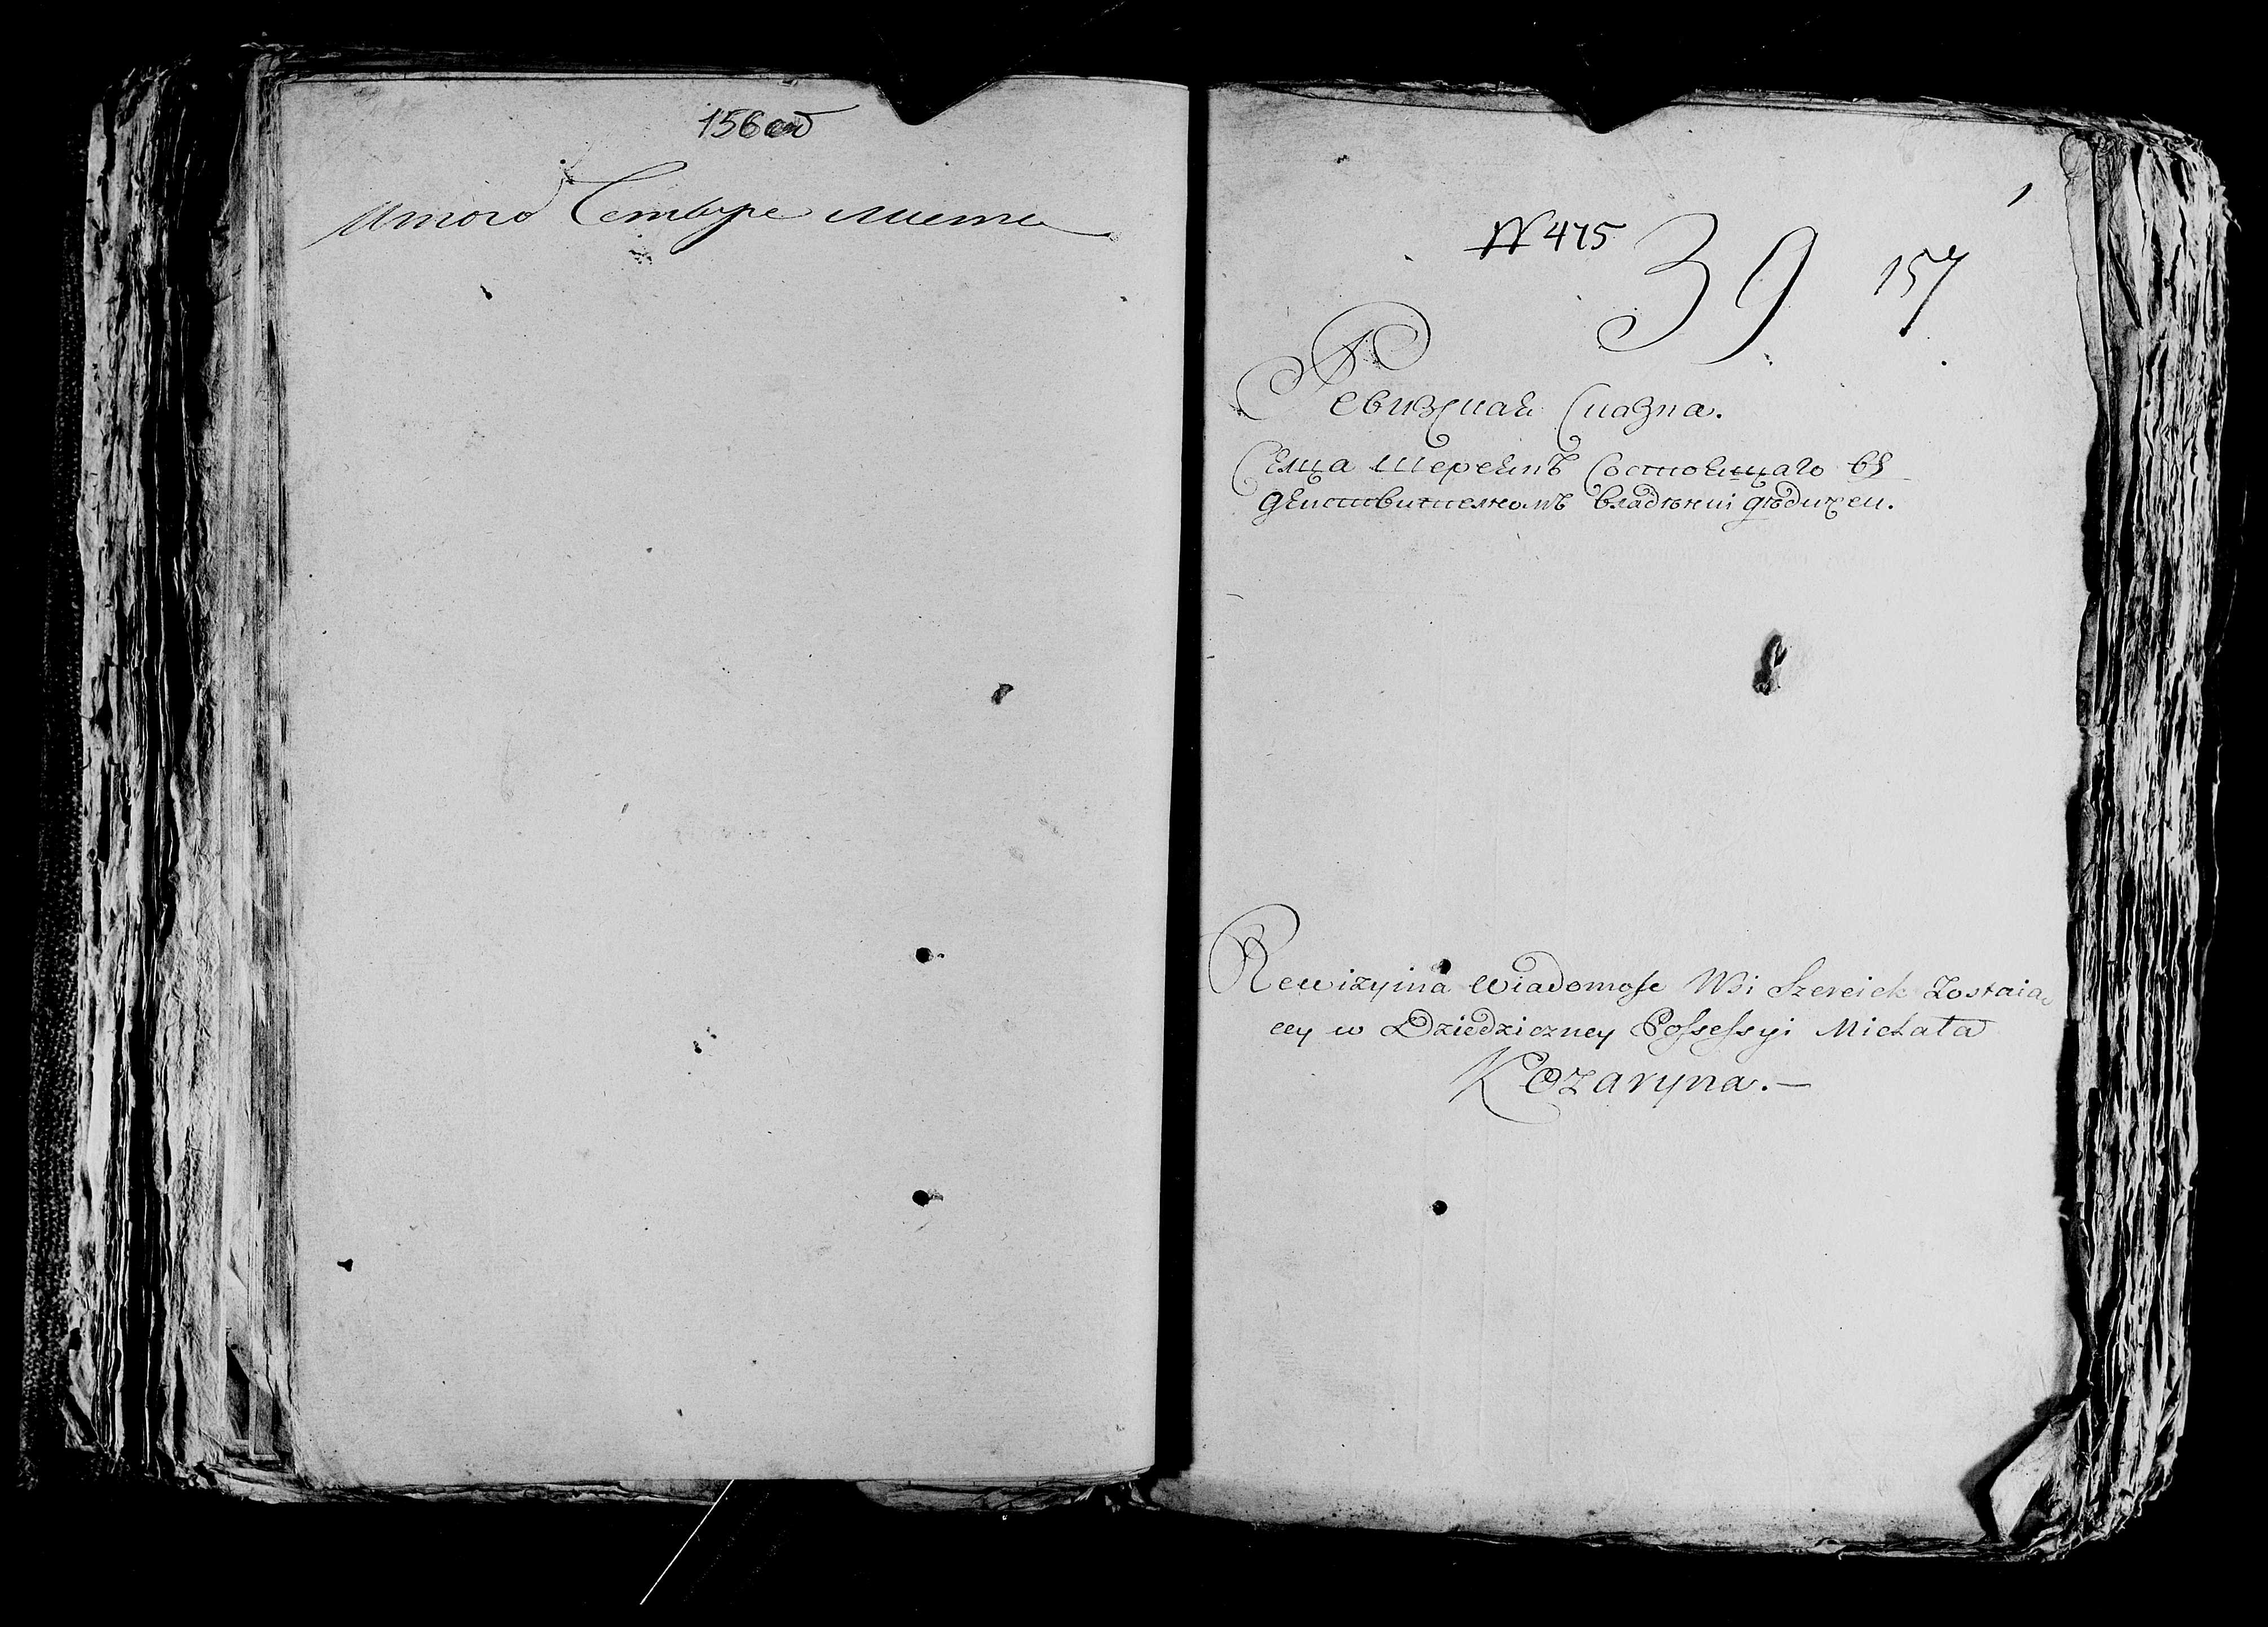 156 об
Итого Четыре листа
1
№ 475
39
157
Ревизская Сказка.
Селца Шереикъ Состоящаго въ
дѣиствителномъ владѣнїи
Rewizyina Wiadomosc Wsi Szereick Zostaia,
cey w Dziedziczney Possessyi Michała
Kozaryna.—